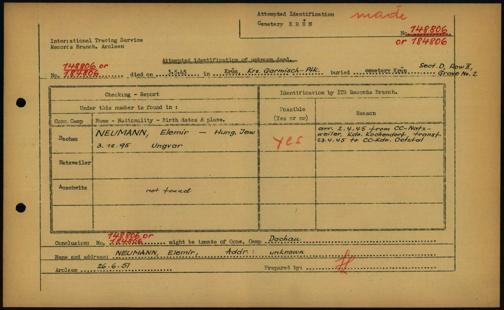 Attempted Identification made
Cemetery KRÜN
No. 148806
or 184806
International Tracing Service
Records Branch, Arolsen
Attempted identification of unknown dead.
148806 or
No. 184806 died on 5.45 in Krün Krs. Garmisch-Ptk. buried cemetery Krün Sect. D, Row II, Grave No. 2
Checking - Report
Identification by ITS Records Branch.
Under this number is found in :
Possible (Yes or no)
Reason
Conc. Camp Name - Nationality - Birth dates & place.
Dachau NEUMANN, Elemir — Hung. Jew
3.10.95 Ungvar
YES
arr. 2.4.45 from CC-Natz-
weiler, Kdo. Kochendorf, transf.
23.4.45 to CC-Kdo. Oetztal
Natzweiler
Auschwitz not found
148806 or
Conclusion: No. 184806 might be inmate of Conc. Camp Dachau
Name and address: NEUMANN, Elemir, Addr. unknown
Arolsen 26.6.51 Prepared by: